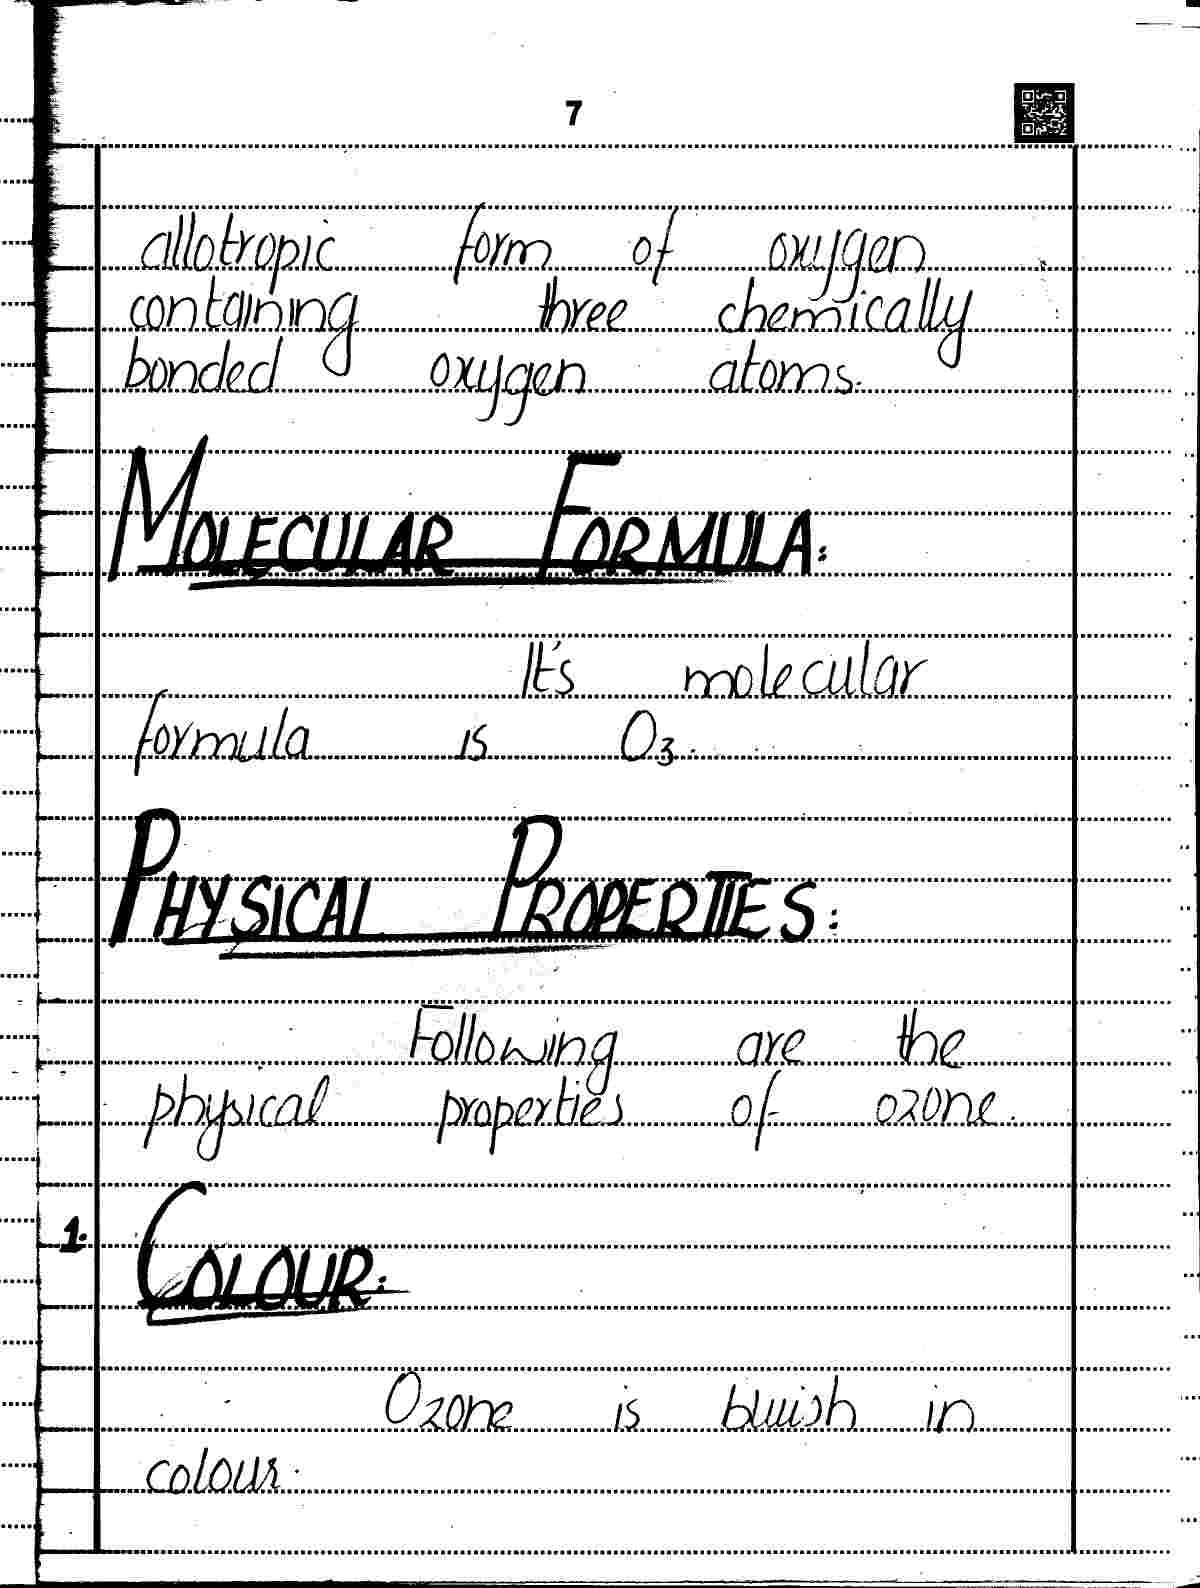 7
allotropic form of oxygen
containing three chemically
bonded oxygen atoms.
MOLECULAR FORMULA:
It's molecular
formula is O₃.
PHYSICAL PROPERTIES:
Following are the
physical properties of ozone.
1. COLOUR:
Ozone is bluish in
colour.